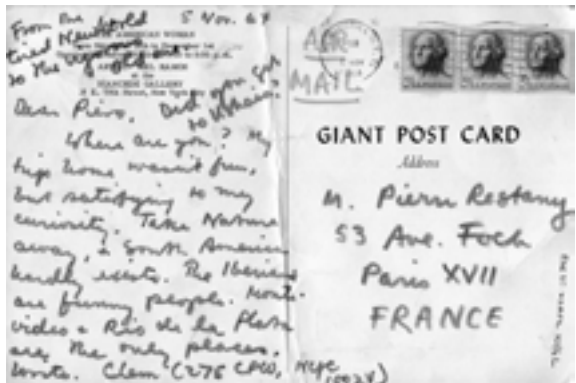 From the 5 Nov. 64
tired New World
to the vigorous
old one
AMERICAN WOMAN
at the
BIANCHINI GALLERY
Dear Pierre, Did you get
Where are you? My
trip home wasn't fun,
but satisfying to my
curiosity. Take Nature
away, & South America
hardly exists. The Iberians
are funny people. Monte-
video & Rio de la Plata
are the only places.
Write. Clem (275 CPW, NYC
10024)
AIR
MAIL
GIANT POST CARD
Address
M. Pierre Restany
53 Ave. Foch
Paris XVII
FRANCE